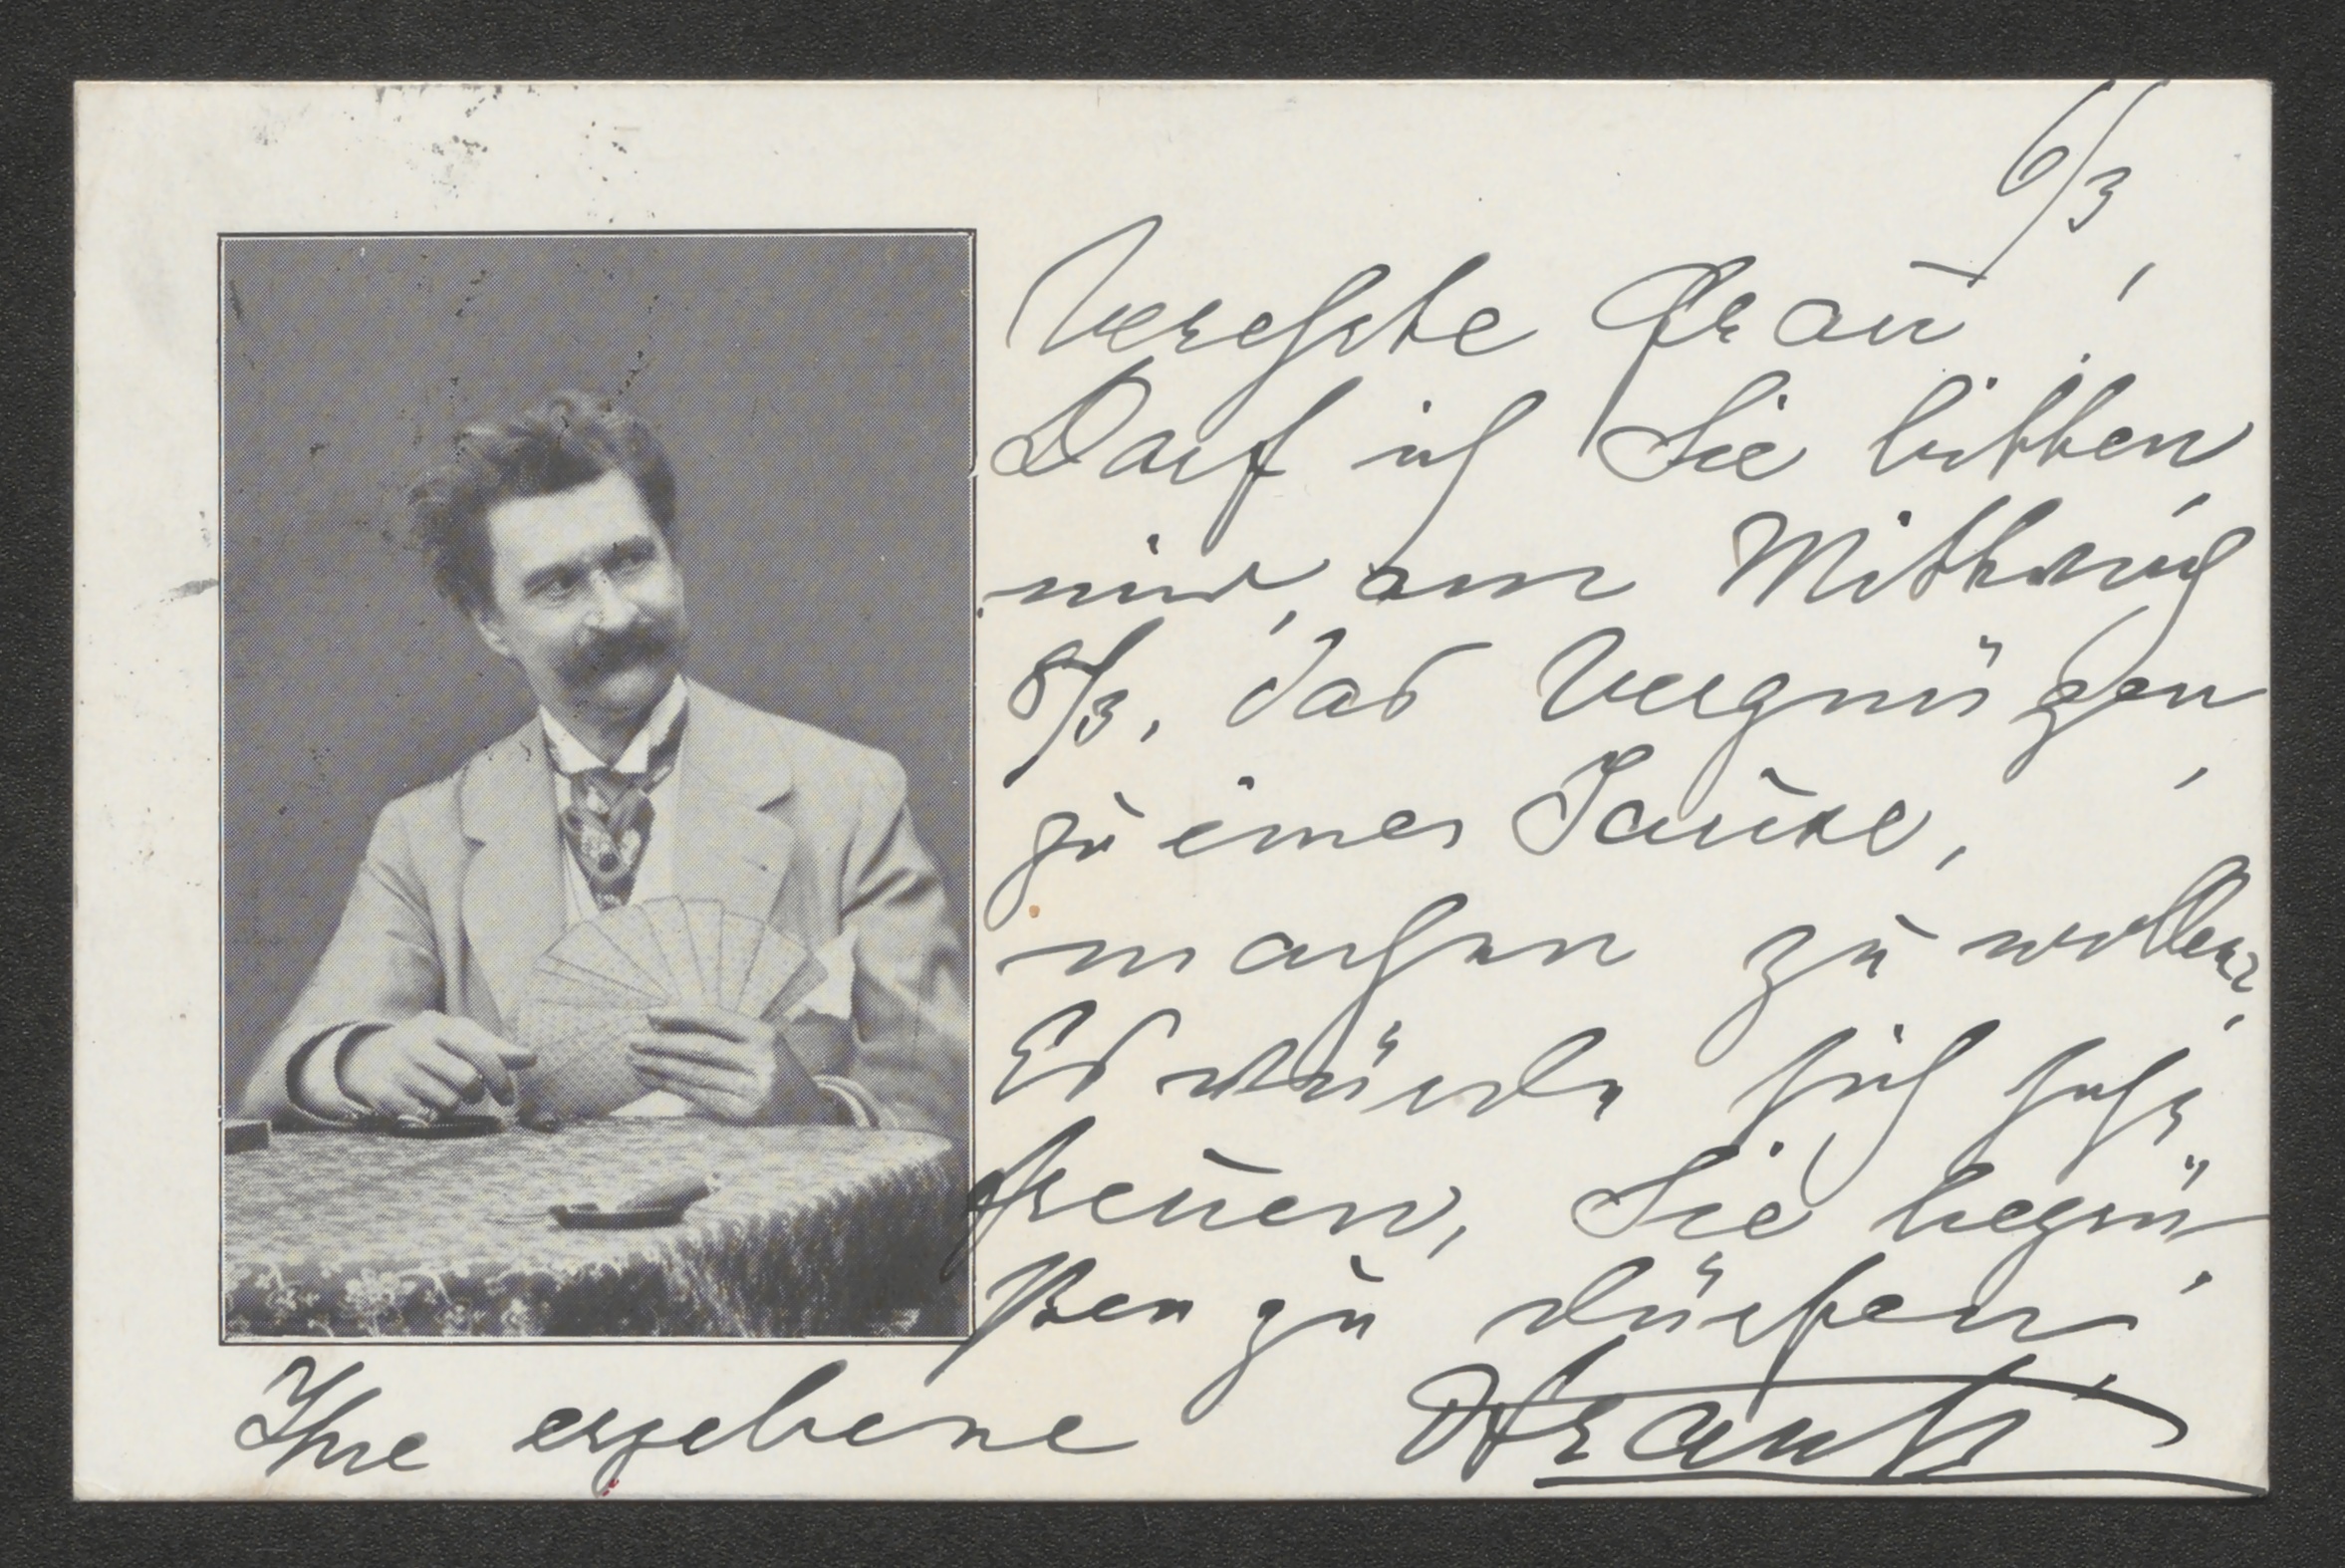 6/3
Verehrte Frau,
Darf ich Sie bitten
mir, am Mittwoch
8/3. das Vergnügen
zu einer Jause,
machen zu wollen?
Es würde mich sehr
freuen, Sie begrü
ßen zu dürfen.
Ihre ergebene